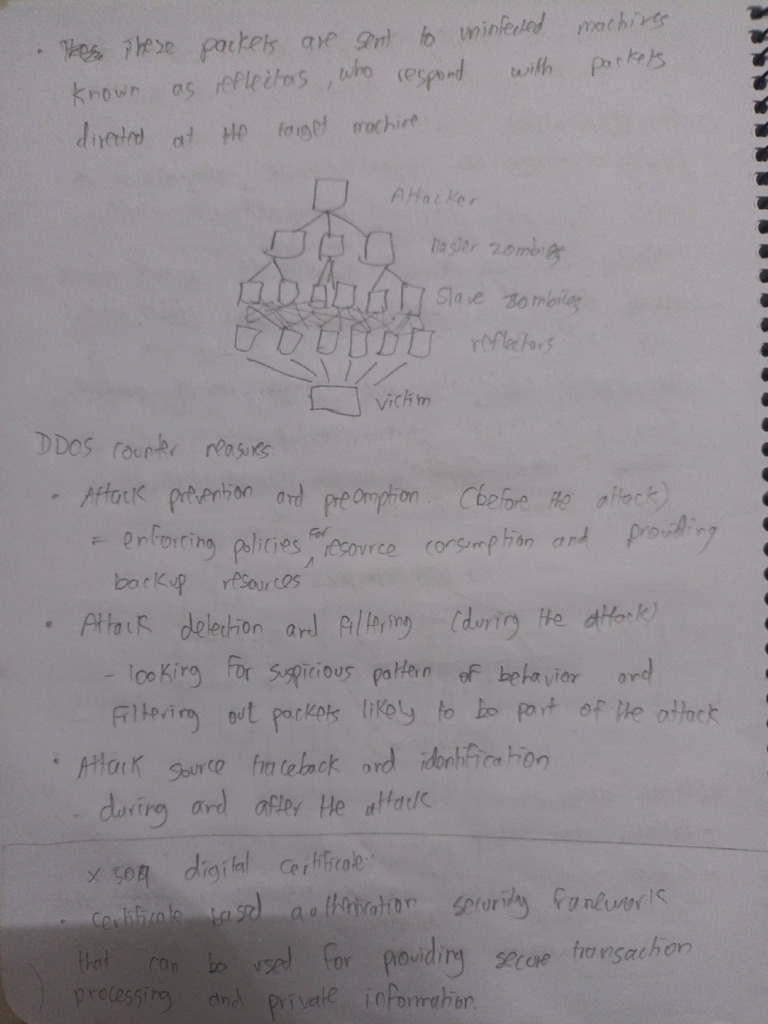 · These packets are sent to uninfected machines
known as reflectors, who respond with packets
directed at the target machine
Attacker
Master zombies
Slave zombies
reflectors
victim
DDOS counter measures
· Attack prevention and preemption. (before the attack)
= enforcing policies for resource consumption and providing
backup resources
· Attack detection and Filtering (during the attack)
- looking for suspicious pattern of behavior and
filtering out packets likely to be part of the attack
· Attack source traceback and identification
- during and after the attack
X 509 digital certificate:
· certificate based authentication security framework
that can be used for providing secure transaction
processing and private information.